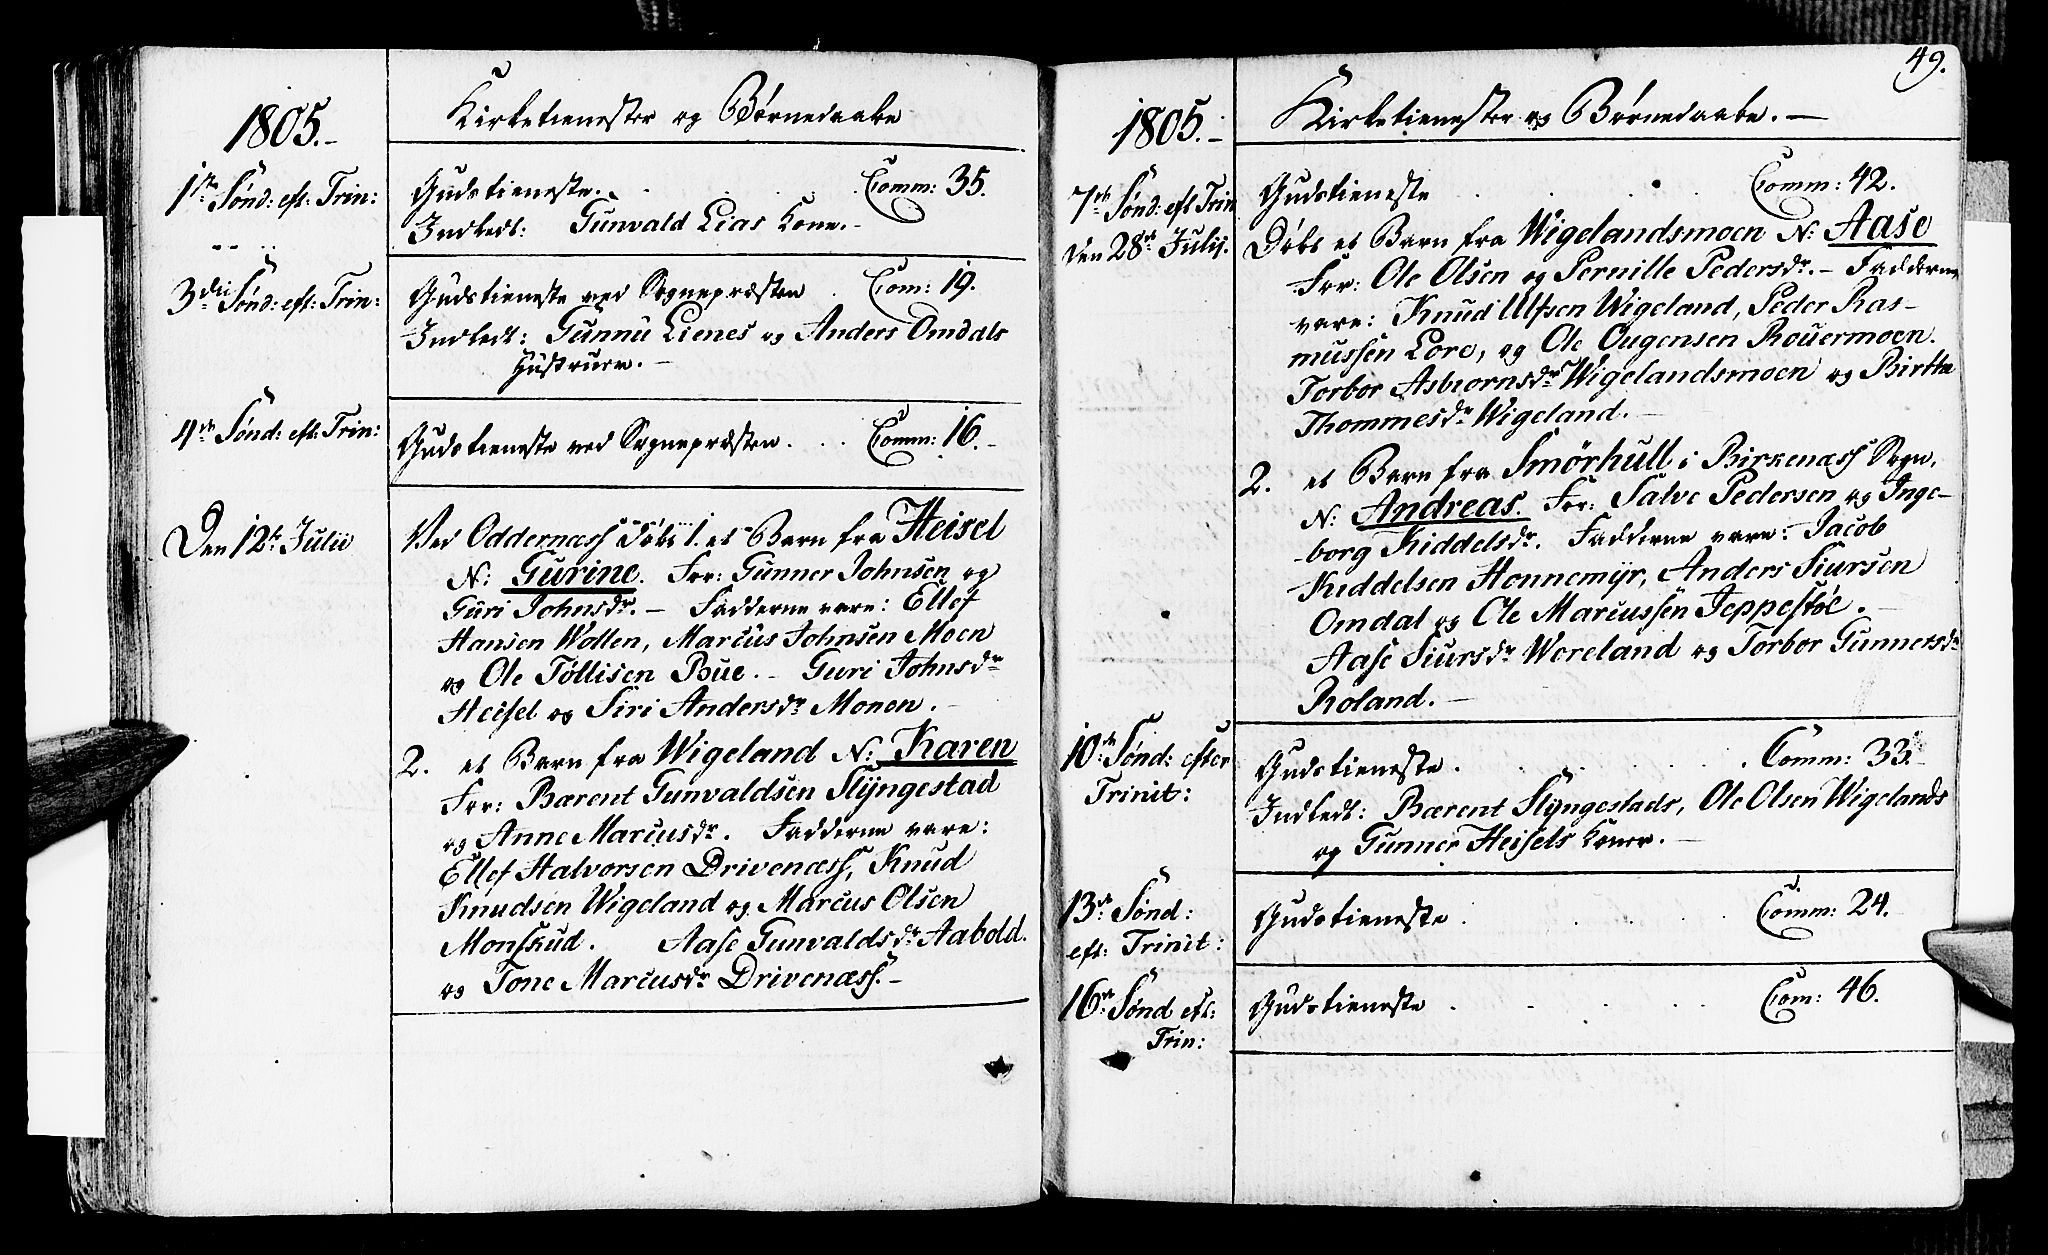 1805.-
Kirketienester og Børnedaabe
1ste Sønd: eft: Trin:
Gudstieneste. . . . . Comm: 35.
Indledt: Gunvald Lias Kone.-
3die Sønd: eft: Trin:
Gudstieneste ved Sognepræsten . Com: 19.
Indledt: Gunnu Lienes og Anders Omdals
Hustruer.-
4de Sønd: eft: Trin:
Gudstieneste ved Sognepræsten. . . Comm: 16.-
Den 12te Julii
Ved Oddernæss døbt 1. et Barn fra Heisel
N: Gurine. For: Gunner Johnsen og
Guri Johnsdr.- Fadderne vare: Ellef
Hansen Wollen, Marcus Johnsen Moen
og Ole Tollisen Bue.- Guri Johnsdr
Heisel og Siri Andersdr Monen.-
2. et Barn fra Wigeland N: Karen
For: Bærent Gunvaldsen Slyngestad
og Anne Marcusdr. Fadderne vare:
Ellef Halvorsen Drivenæss, Knud
Knudsen Wigeland og Marcus Olsen
Monskud. Aase Gunvaldsdr Aabold.
og Tone Marcusdr Drivenæss.-
49.
1805.-
Kirketienester og Børnedaabe.-
7de Sønd: eft Trin
den 28de Julij.
Gudstieneste . . . . Comm: 42.
Døbt et Barn fra Wigelandsmoen N: Aase
For: Ole Olsen og Pernille Pedersdr.- Fadderne
vare: Knud Ulfsen Wigeland, Peder Ras-
mussen Lore, og Ole Ougensen Rouermoen.
Torbor Asbiornsdr Wigelandsmoen og Birthe
Thommesdr Wigeland.-
2. et Barn fra Smørhull i Birkenæss Sogn,
N: Andreas. For: Salve Pedersen og Inge-
borg Kiddelsdr. Fadderne vare: Jacob
Kiddelsen Honnemyr, Anders Siursen
Omdal og Ole Marcussen Jeppestøe.-
Aase Siursdr Woreland og Torbor Gunnersdr
Roland.-
10de Sønd: efter
Trinit:
Gudstieneste . . . . . Comm: 33.-
Indledt: Bærent Slyngestads, Ole Olsen Wigelands
og Gunner Heisels Koner.-
13de Sønd:
eft: Trinit:
Gudstieneste . . . . Comm: 24.
16de Sønd eft:
Trin:
Gudstieneste . . . . Com: 46.